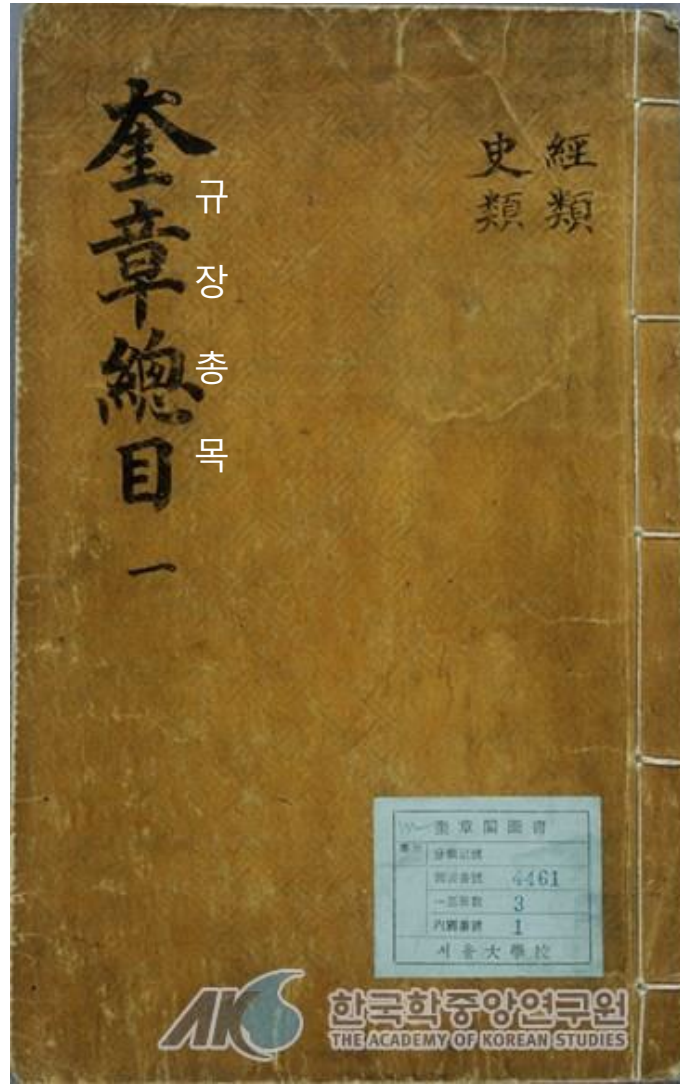 奎章總目 一
규장총목
經類
史類
奎章閣圖書
圖書番號 4461
一部冊數 3
內冊番號 1
서울大學校
AKS 한국학중앙연구원
THE ACADEMY OF KOREAN STUDIES